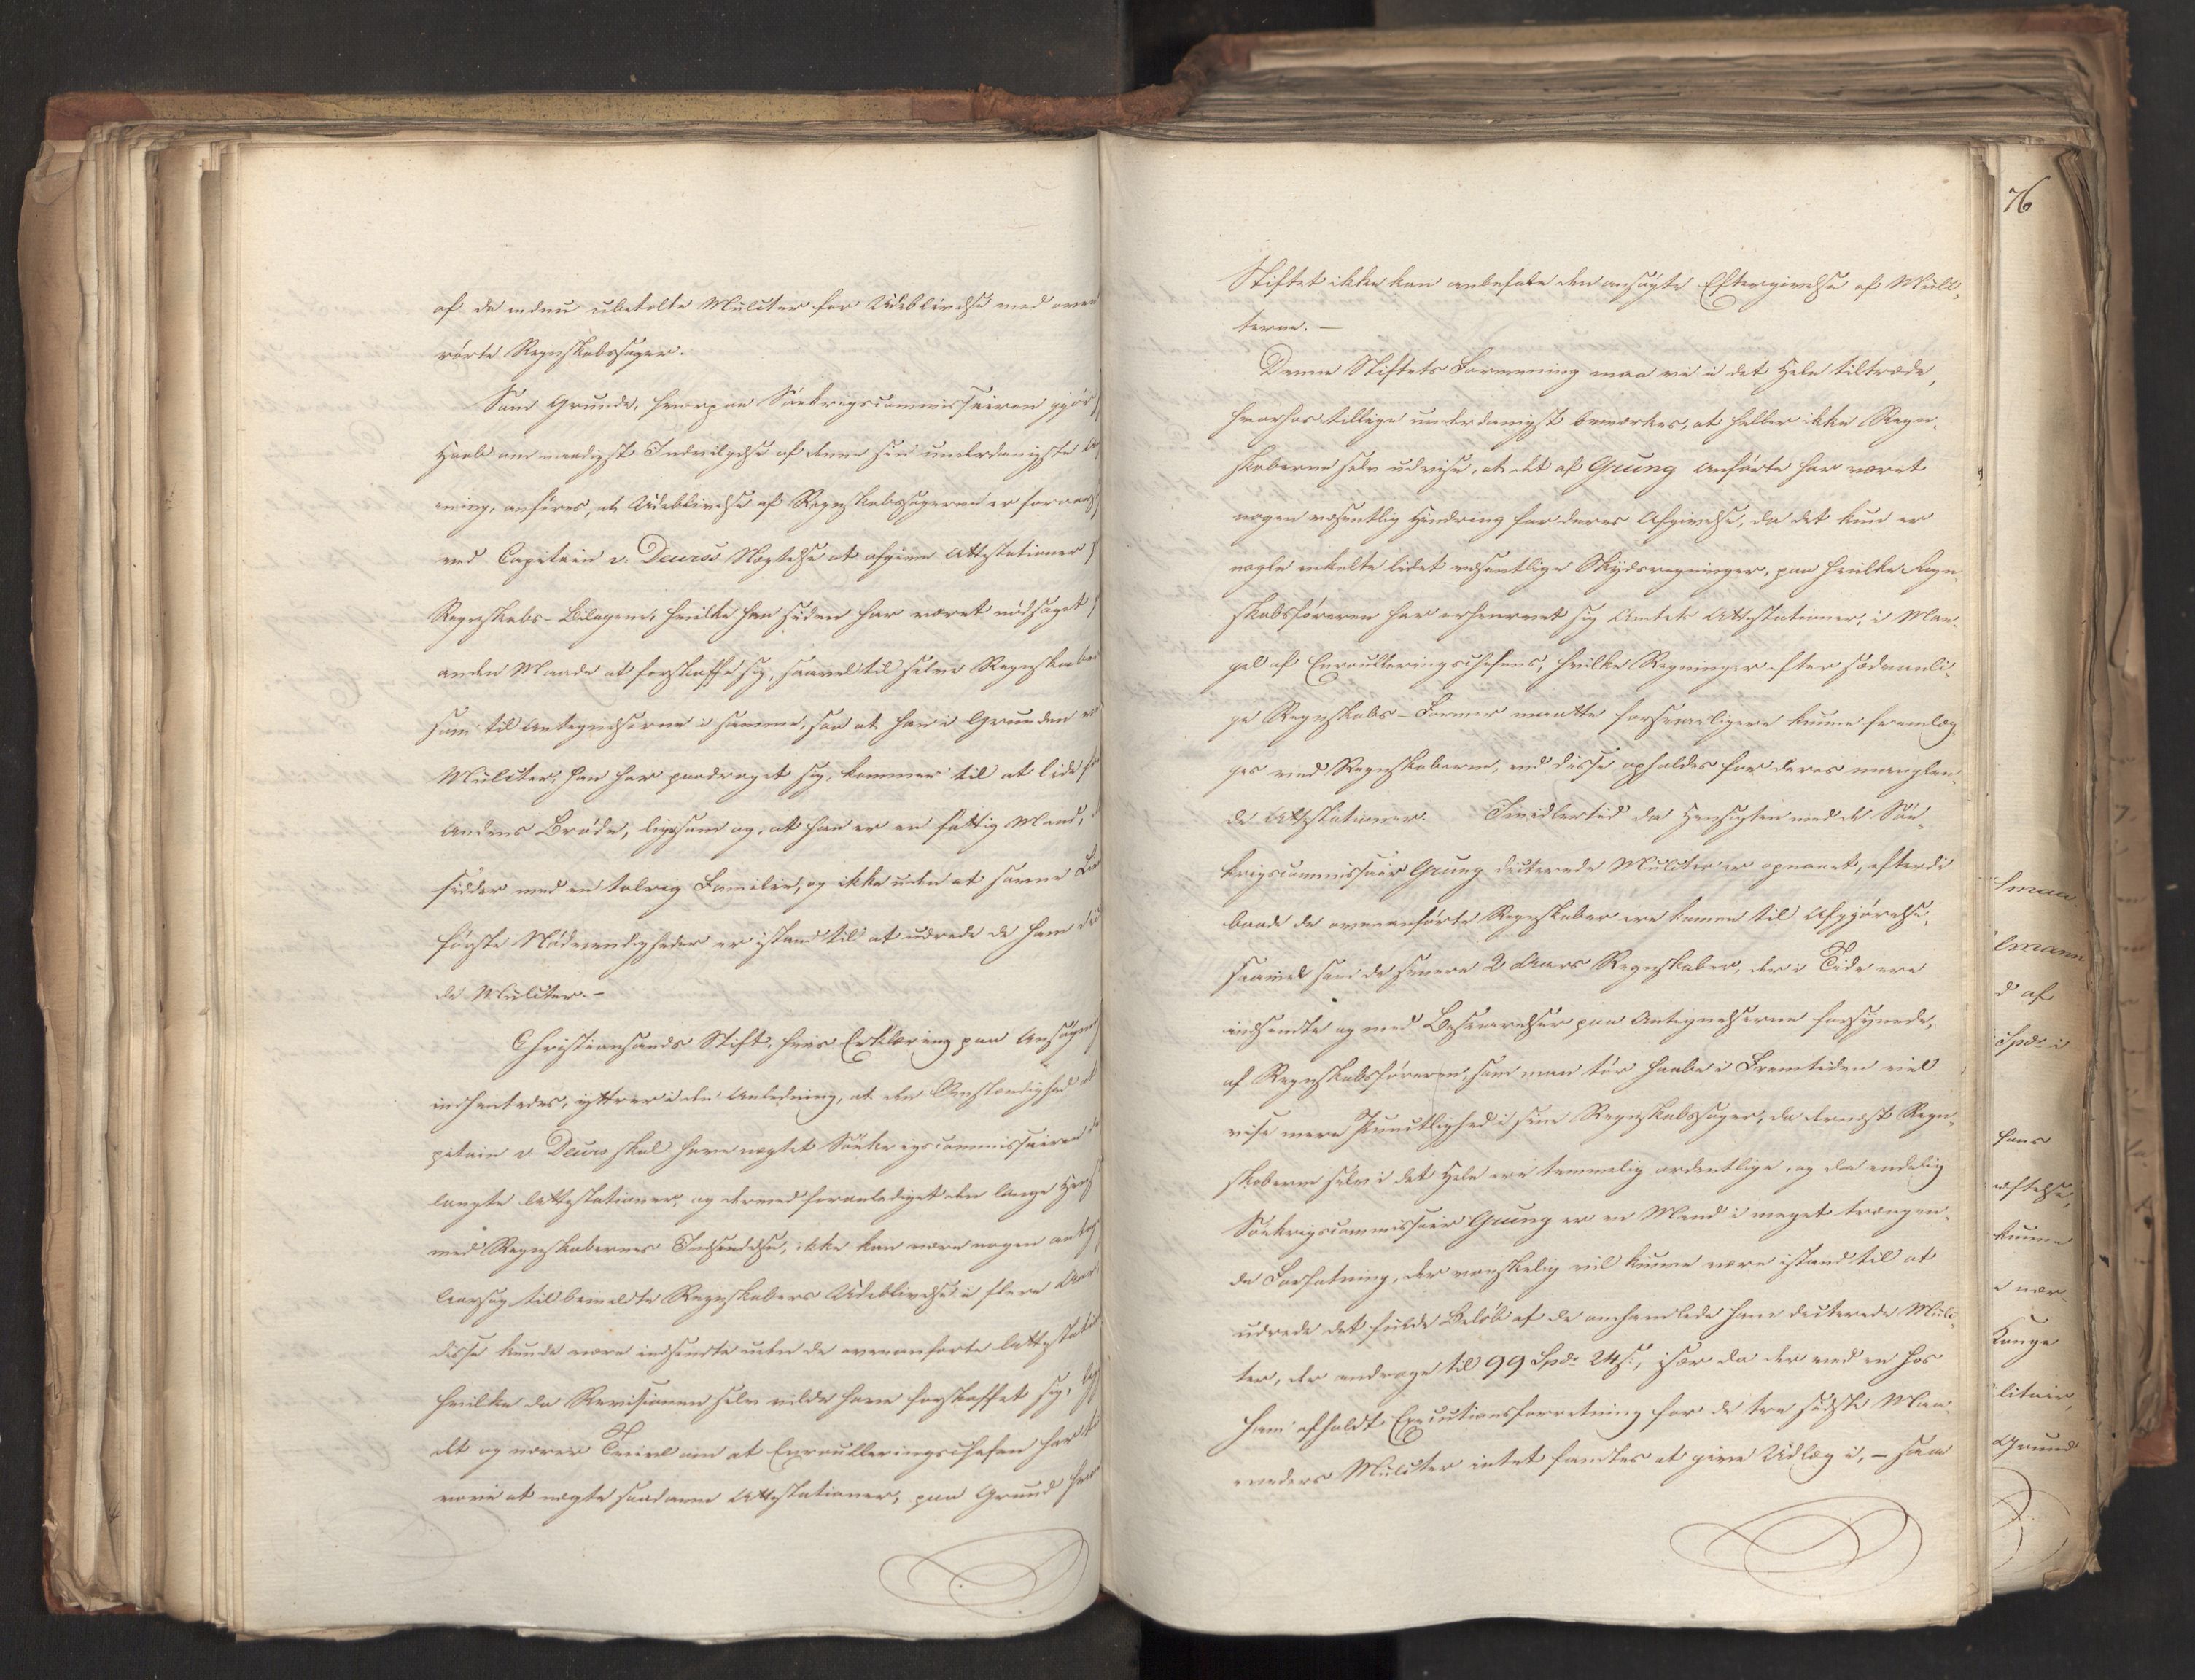 af de endnu ubetalte Mulcter for Udeblivelse med oven
rørte Regnskabssager.
Som Grunde, hvorpaa Søekrigscommissairen gjør
Haab om naadigst Indvilgelse af denne sin underdanigste
ning, anføres, at Udeblivelse af Regnskabssagerne er foraar
ved Capitain v. Deurss Nægtelse at afgive Attestationer
Regnskabs-Bilagene, hvilke han siden har været nødsaget
anden Maade at forskaffe sig, saavel til selve Regnskaber
som til Antegnelserne i samme, saa at han i Grunden
Mulcter, han har paadraget sig, kommer til at lide for
Andens Brøde, ligesom og, at han er en fattig Mand,
sidder med en talrig Familie, og ikke uden at savne
første Nødvendigheder er istand til at udrede de ham
de Mulcter.-
Christiansands Stift, hvis Erklæring paa Ansøgnin
indhentedes, yttrer i den Anledning, at den Omstændighed at
pitain v. Deurs skal have nægtet Søekrigscommissairen
langte Attestationer, og derved foranlediget den lange
med Regnskabernes Indsendelse, ikke kan være nogen antag
Aarsag til bemeldte Regnskabers Udeblivelse i flere Aar
disse kunde være indsendte uden de ovenanførte Attestatio
hvilke da Revisionen selv vilde have forskaffet sig,
det og være Tvivl om at Enroulleringschefen har
være at nægte saadanne Attestationer, paa Grund
76
Stiftet ikke kan anbefale den ansøgte Eftergivelse af Mulc-
terne. —
Denne Stiftets Formening maa vi i det Hele tiltræde,
hvorhos tillige underdanigst bemærkes, at heller ikke Regn-
skaberne selv udvise, at det af Grung anførte har været
nogen væsentlig Hindring for deres Afgivelse, da det kun er
nogle enkelte lidet væsentlige Skydsregninger, paa hvilke Regn-
skabsføreren har erhvervet sig Amtets Attestationer, i Man-
gel af Enroulleringschefens, hvilke Regninger efter sædvanli-
ge Regnskabs-Former maatte forsvarligere kunne fremlæg-
ges ved Regnskaberne, end disse opholdes for deres manglen-
de Attestationer. Imidlertid da Hensigten med de Søe-
krigscommissair Grung dicterede Mulcter er opnaaet, efterdi
baade de ovenanførte Regnskaber ere komne til Afgjørelse,
saavel som de senere 2 Aars Regnskaber, der i Tide ere
indsendte og med Besvarelser paa Antegnelserne forsynede,
af Regnskabsføreren, som man tør haabe i Fremtiden vil
vise mere Punctlighed i sine Regnskabssager, da dernæst Regn-
skaberne selv i det Hele ere temmelig ordentlige, og da endelig
Søekrigscommissair Grung er en Mand i meget trængen-
de Forfatning, der vanskelig vil kunne være istand til at
udrede det fulde Beløb af de omhandlede ham dicterede Mulc-
ter, der andrage til 99 Spd. 24 s., især da der ved en hos
ham afholdt Executionsforretning for de tre sidste Maa-
neders Mulcter intet fandtes at give Udlæg i, - saa
d af
Spd. i
hans
kunne
Konge
litair,
Grund